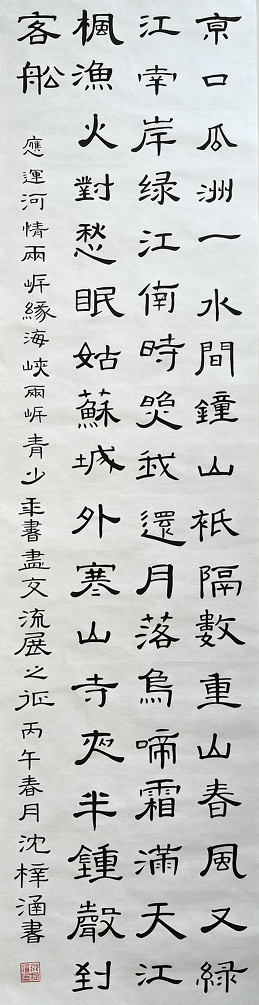 京口瓜洲一水間鐘山衹隔數重山春風又綠
江南岸绿江南時照我還月落烏啼霜滿天江
楓漁火對愁眠姑蘇城外寒山寺夜半鍾聲到
客船
應運河情兩岸緣海峽兩岸青少年書畫交流展之征丙午春月沈梓涵書